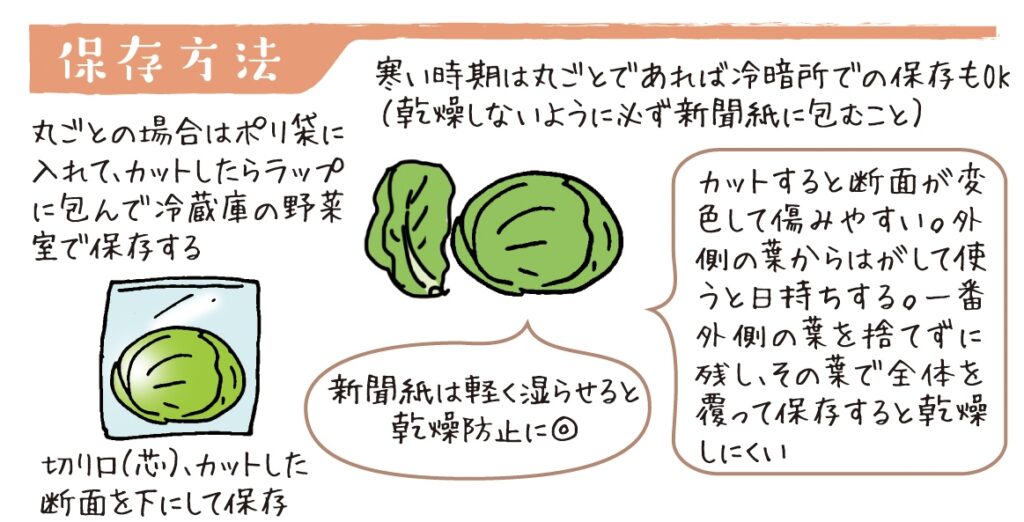 保存方法
丸ごとの場合はポリ袋に
入れて、カットしたらラップ
に包んで冷蔵庫の野菜
室で保存する
切り口(芯)、カットした
断面を下にして保存
寒い時期は丸ごとであれば冷暗所での保存もOK
(乾燥しないように必ず新聞紙に包むこと)
新聞紙は軽く湿らせると
乾燥防止に◎
カットすると断面が変
色して傷みやすい。外
側の葉からはがして使
うと日持ちする。一番
外側の葉を捨てずに
残し、その葉で全体を
覆って保存すると乾燥
しにくい